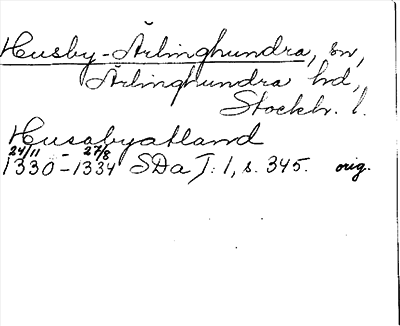 Husby-Ärlinghundra, sn,
Ärlinghundra hd,
Stockh. l.
Husabyaland
24/11 - 27/8
1330-1334 SDa I: 1, s. 345. orig.